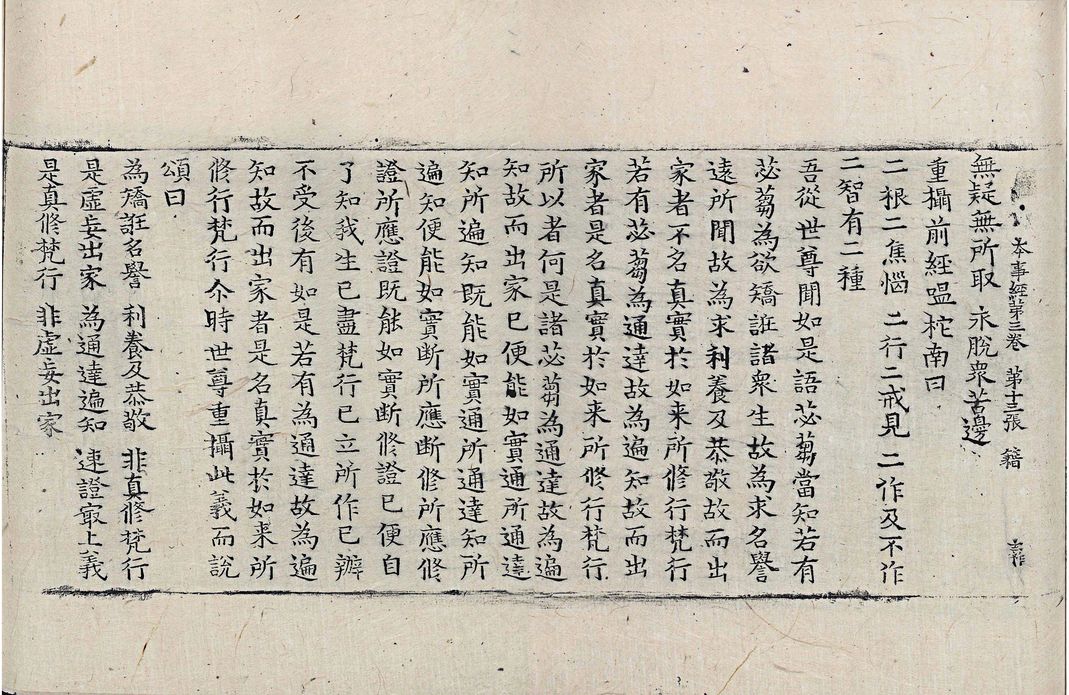 本事經第三卷 第十三張 籍
無疑無所取 永脫衆苦邊
重攝前經嗢柁南曰
二根二焦惱 二行二戒見 二作及不作
二智有二種
吾從世尊聞如是語苾蒭當知若有
苾蒭為欲矯誑諸衆生故為求名譽
遠所聞故為求利養及恭敬故而出
家者不名真實於如来所修行梵行
若有苾蒭為通達故為遍知故而出
家者是名真實於如来所修行梵行
所以者何是諸苾蒭為通達故為遍
知故而出家已便能如實通所通達
知所遍知既能如實通所通達知所
遍知便能如實断所應断修所應修
證所應證既能如實断修證已便自
了知我生已盡梵行已立所作已辦
不受後有如是若有為通達故為遍
知故而出家者是名真實於如来所
修行梵行尒時世尊重攝此義而說
頌曰
為矯誑名譽 利養及恭敬 非真修梵行
是虛妄出家 為通達遍知 速證冣上義
是真修梵行 非虛妄出家